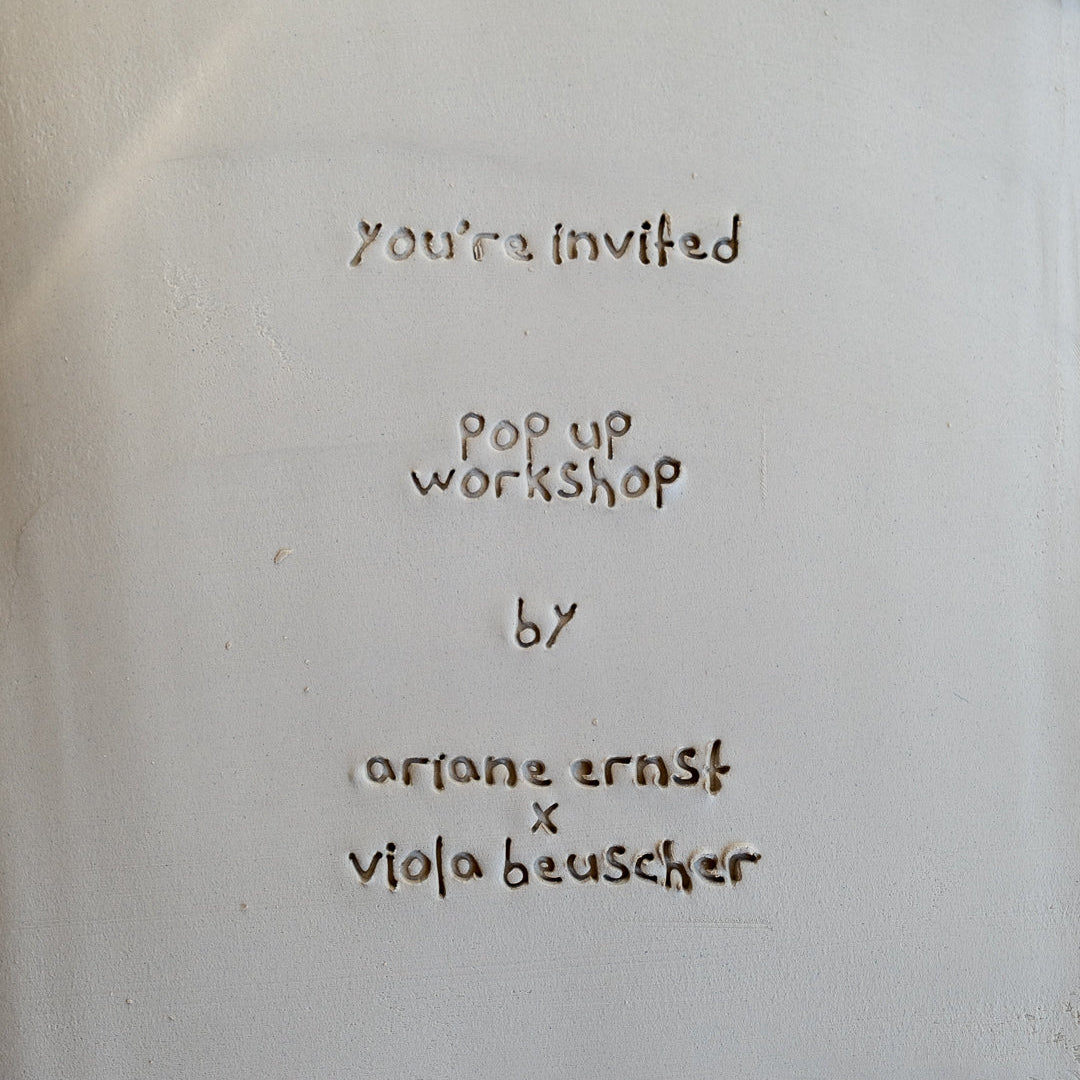 you're invited
pop up
workshop
by
ariane ernst
x
viola beuscher